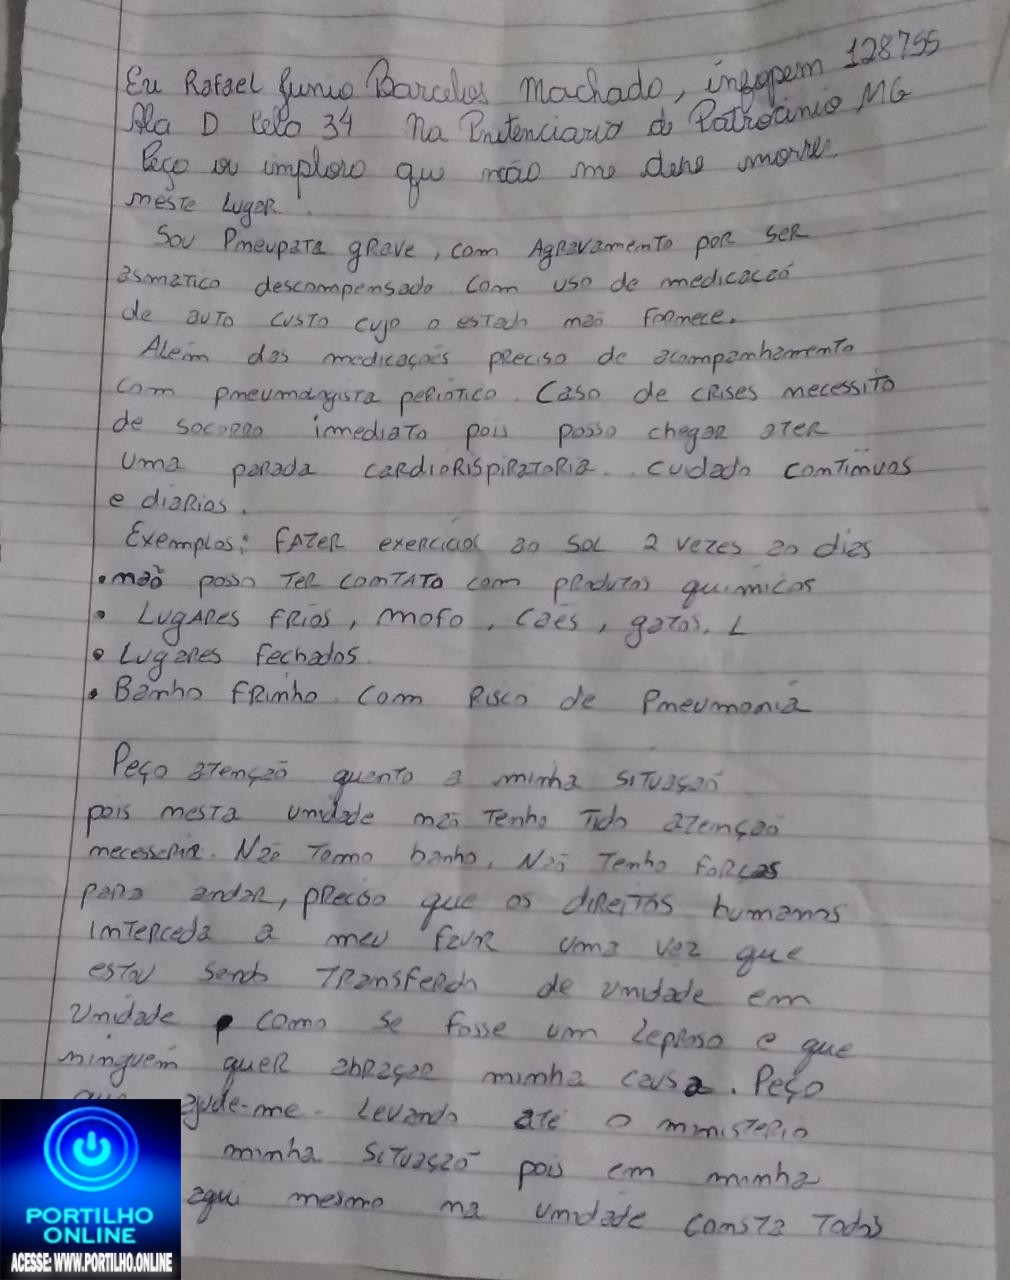 Eu Rafael Junio Barcelos Machado, infopem 128755
Ala D Cela 34 Na Penitenciario de Patrocinio MG
Peço ou imploro que não me dene morrer
neste Lugar.
Sou Pneupata grave, com Agravamento por ser
asmatico descompensado com uso de medicação
de auto custo cujo o estado não fornece.
Além das medicações preciso de acompanhamento
com pneumologista periotico. Caso de crises necessito
de socorro imediato pois posso chegar ater
uma parada cardiorispiratoria. cuidado continuos
e diarios.
Exemplos: Fazer exercicios ao sol 2 vezes ao dias
• não posso ter contato com produtos quimicos
• Lugares frios, mofo, cães, gatos, L
• Lugares fechados.
• Banho frinho. com risco de Pneumonia
Peço atenção quanto a minha situação
pois nesta unidade não tenho tido atenção
necesseria. Não tomo banho, Não tenho forças
para andar, preciso que os direitos humanos
interceda a meu favor uma vez que
estou sendo transferido de unidade em
unidade como se fosse um leproso e que
ninguém quer abraçar minha causa. Peço
que ajude-me. Levando até o ministerio
minha situação pois em minha
aqui mesmo na unidade consta todos
PORTILHO
ONLINE
ACESSE: WWW.PORTILHO.ONLINE